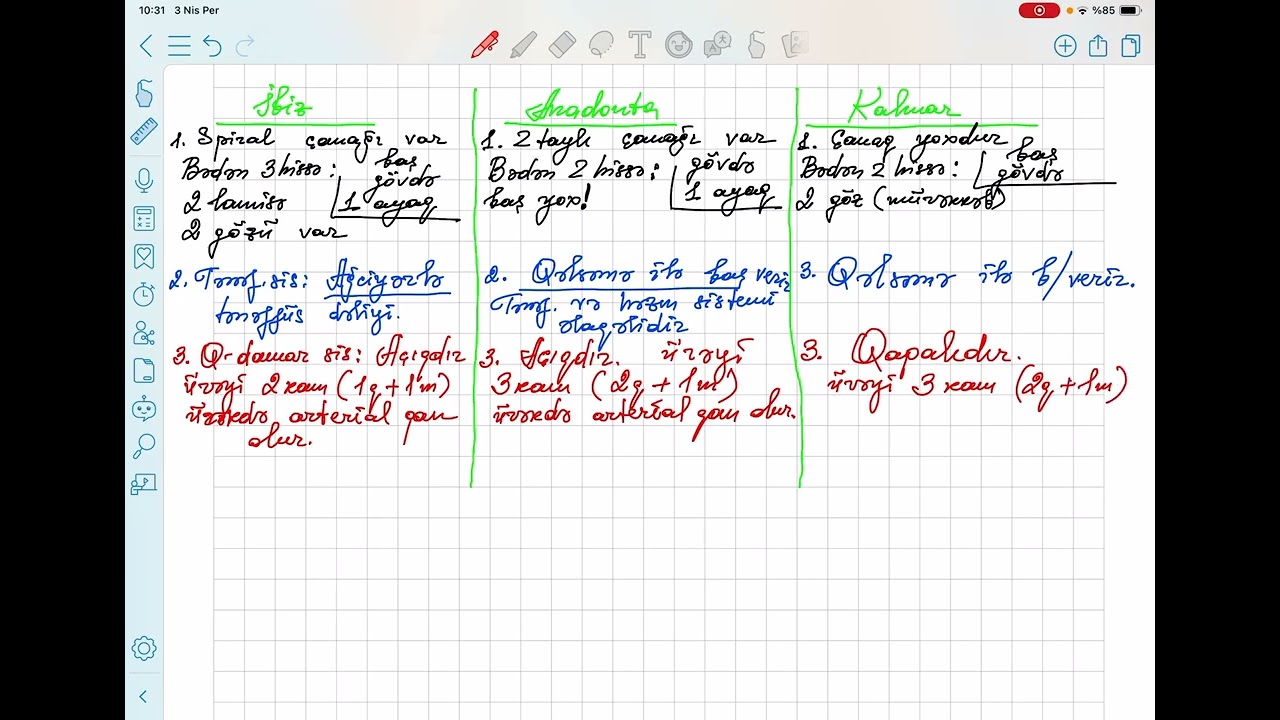 10:31 3 Nis Per
%85
İlbiz
1. Spiral çanağı var
Bədən 3 hissə: baş
gövdə
1 ayaq
2 lamisə
2 gözü var
2. Tənəf. sis: Ağciyərlə
tənəffüs dəliyi.
3. Q-damar sis: Açıqdır
ürəyi 2 kam (1q + 1m)
ürəkdə arterial qan
olur.
Anadonta
1. 2 taylı çanağı var
Bədən 2 hissə: gövdə
1 ayaq
baş yox!
2. Qəlsəmə ilə baş verir
Tənəf. və həzm sistemi
əlaqəlidir
3. Açıqdır. ürəyi
3 kam (2q + 1m)
ürəkdə arterial qan olur.
Kalmar
1. Çanaq yoxdur
Bədən 2 hissə: baş
gövdə
2 göz (mürəkkəb)
3. Qəlsəmə ilə b/verir.
3. Qapalıdır.
ürəyi 3 kam (2q + 1m)